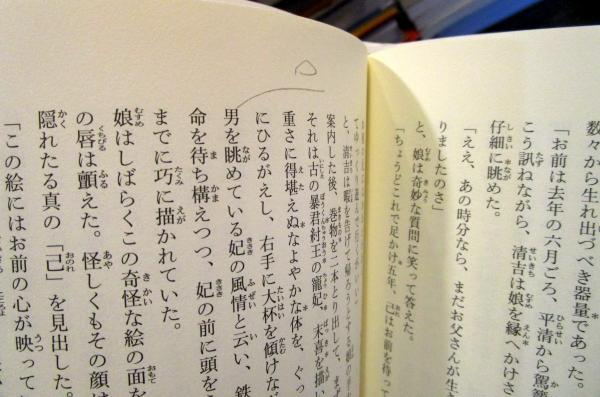 数々から生れ出づべき器量であった。
「お前は去年の六月ごろ、平清から駕籠
こう訊ねながら、清吉は娘を縁へかけさ
仔細に眺めた。
「ええ、あの時分なら、まだお父さんが生
りましたのさ」
と、娘は奇妙な質問に笑って答えた。
「ちょうどこれで足かけ五年、己はお前を待って
てゆっくり遊んで行くがいい」
と、清吉は暇を告げて帰ろうとする娘の
案内した後、巻物を二本とり出して、まず
それは古の暴君紂王の寵妃、末喜を描い
重さに得堪えぬなよやかな体を、ぐっ
にひるがえし、右手に大杯を傾けなが
男を眺めている妃の風情と云い、鉄
命を待ち構えつつ、妃の前に頭を
までに巧に描かれていた。
娘はしばらくこの奇怪な絵の面を
の唇は顫えた。怪しくもその顔は
隠れたる真の「己」を見出した。
「この絵にはお前の心が映って